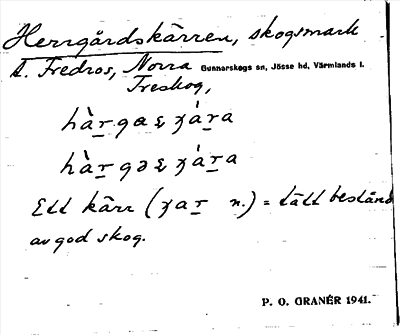 Herrgårdskärren, skogsmark
t. Fredros, Norra Gunnarskogs sn, Jösse hd, Värmlands l.
Treskog,
Ett kärr n.) = tätt bestånd
av god skog.
P. O. GRANÉR 1941.